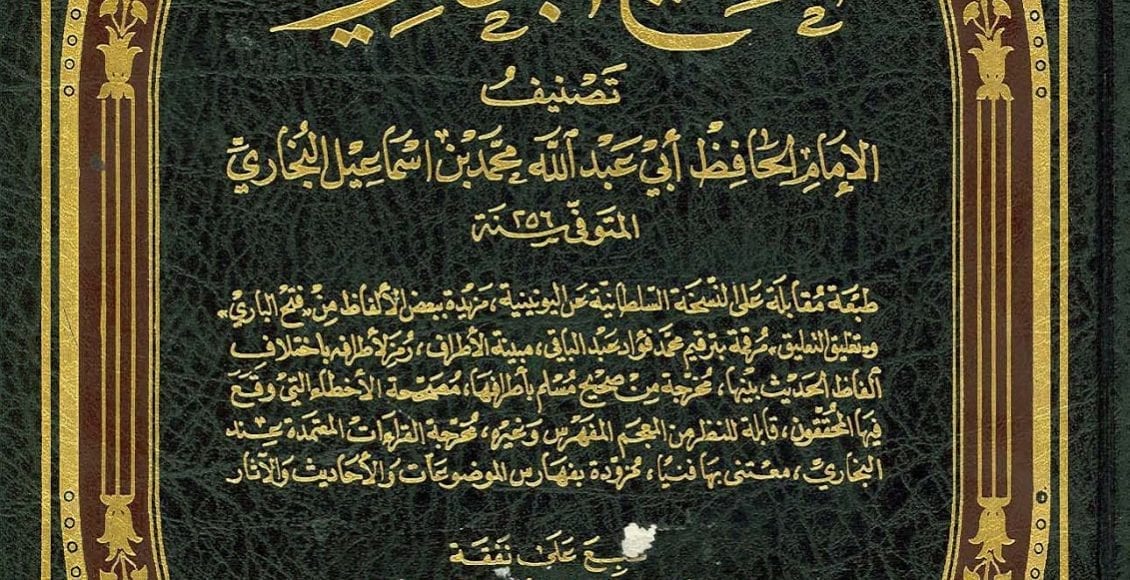 صحيح البخاري
تصنيف
الإمام الحافظ أبي عبد الله محمد بن اسماعيل البخاري
المتوفى سنة ٢٥٦
طبعة مقابلة على النسخة السلطانية عن اليونينية، مزيدة ببعض الألفاظ من «فتح الباري»
و«تعليق التعليق» مرقمة بترقيم محمد فؤاد عبد الباقي، مبينة الأطراف، رمز لأطرافه باختلاف
ألفاظ الحديث بينها، مخرجة من صحيح مسلم بأطرافها، مصححة الأخطاء التي وقع
فيها المحققون، قابلة للنظر من المعجم المفهرس وغيره، مخرجة القراءات المعتمدة عند
البخاري، معتنى بها فنيا، مزودة بفهارس الموضوعات والأحاديث والآثار
على نفقة